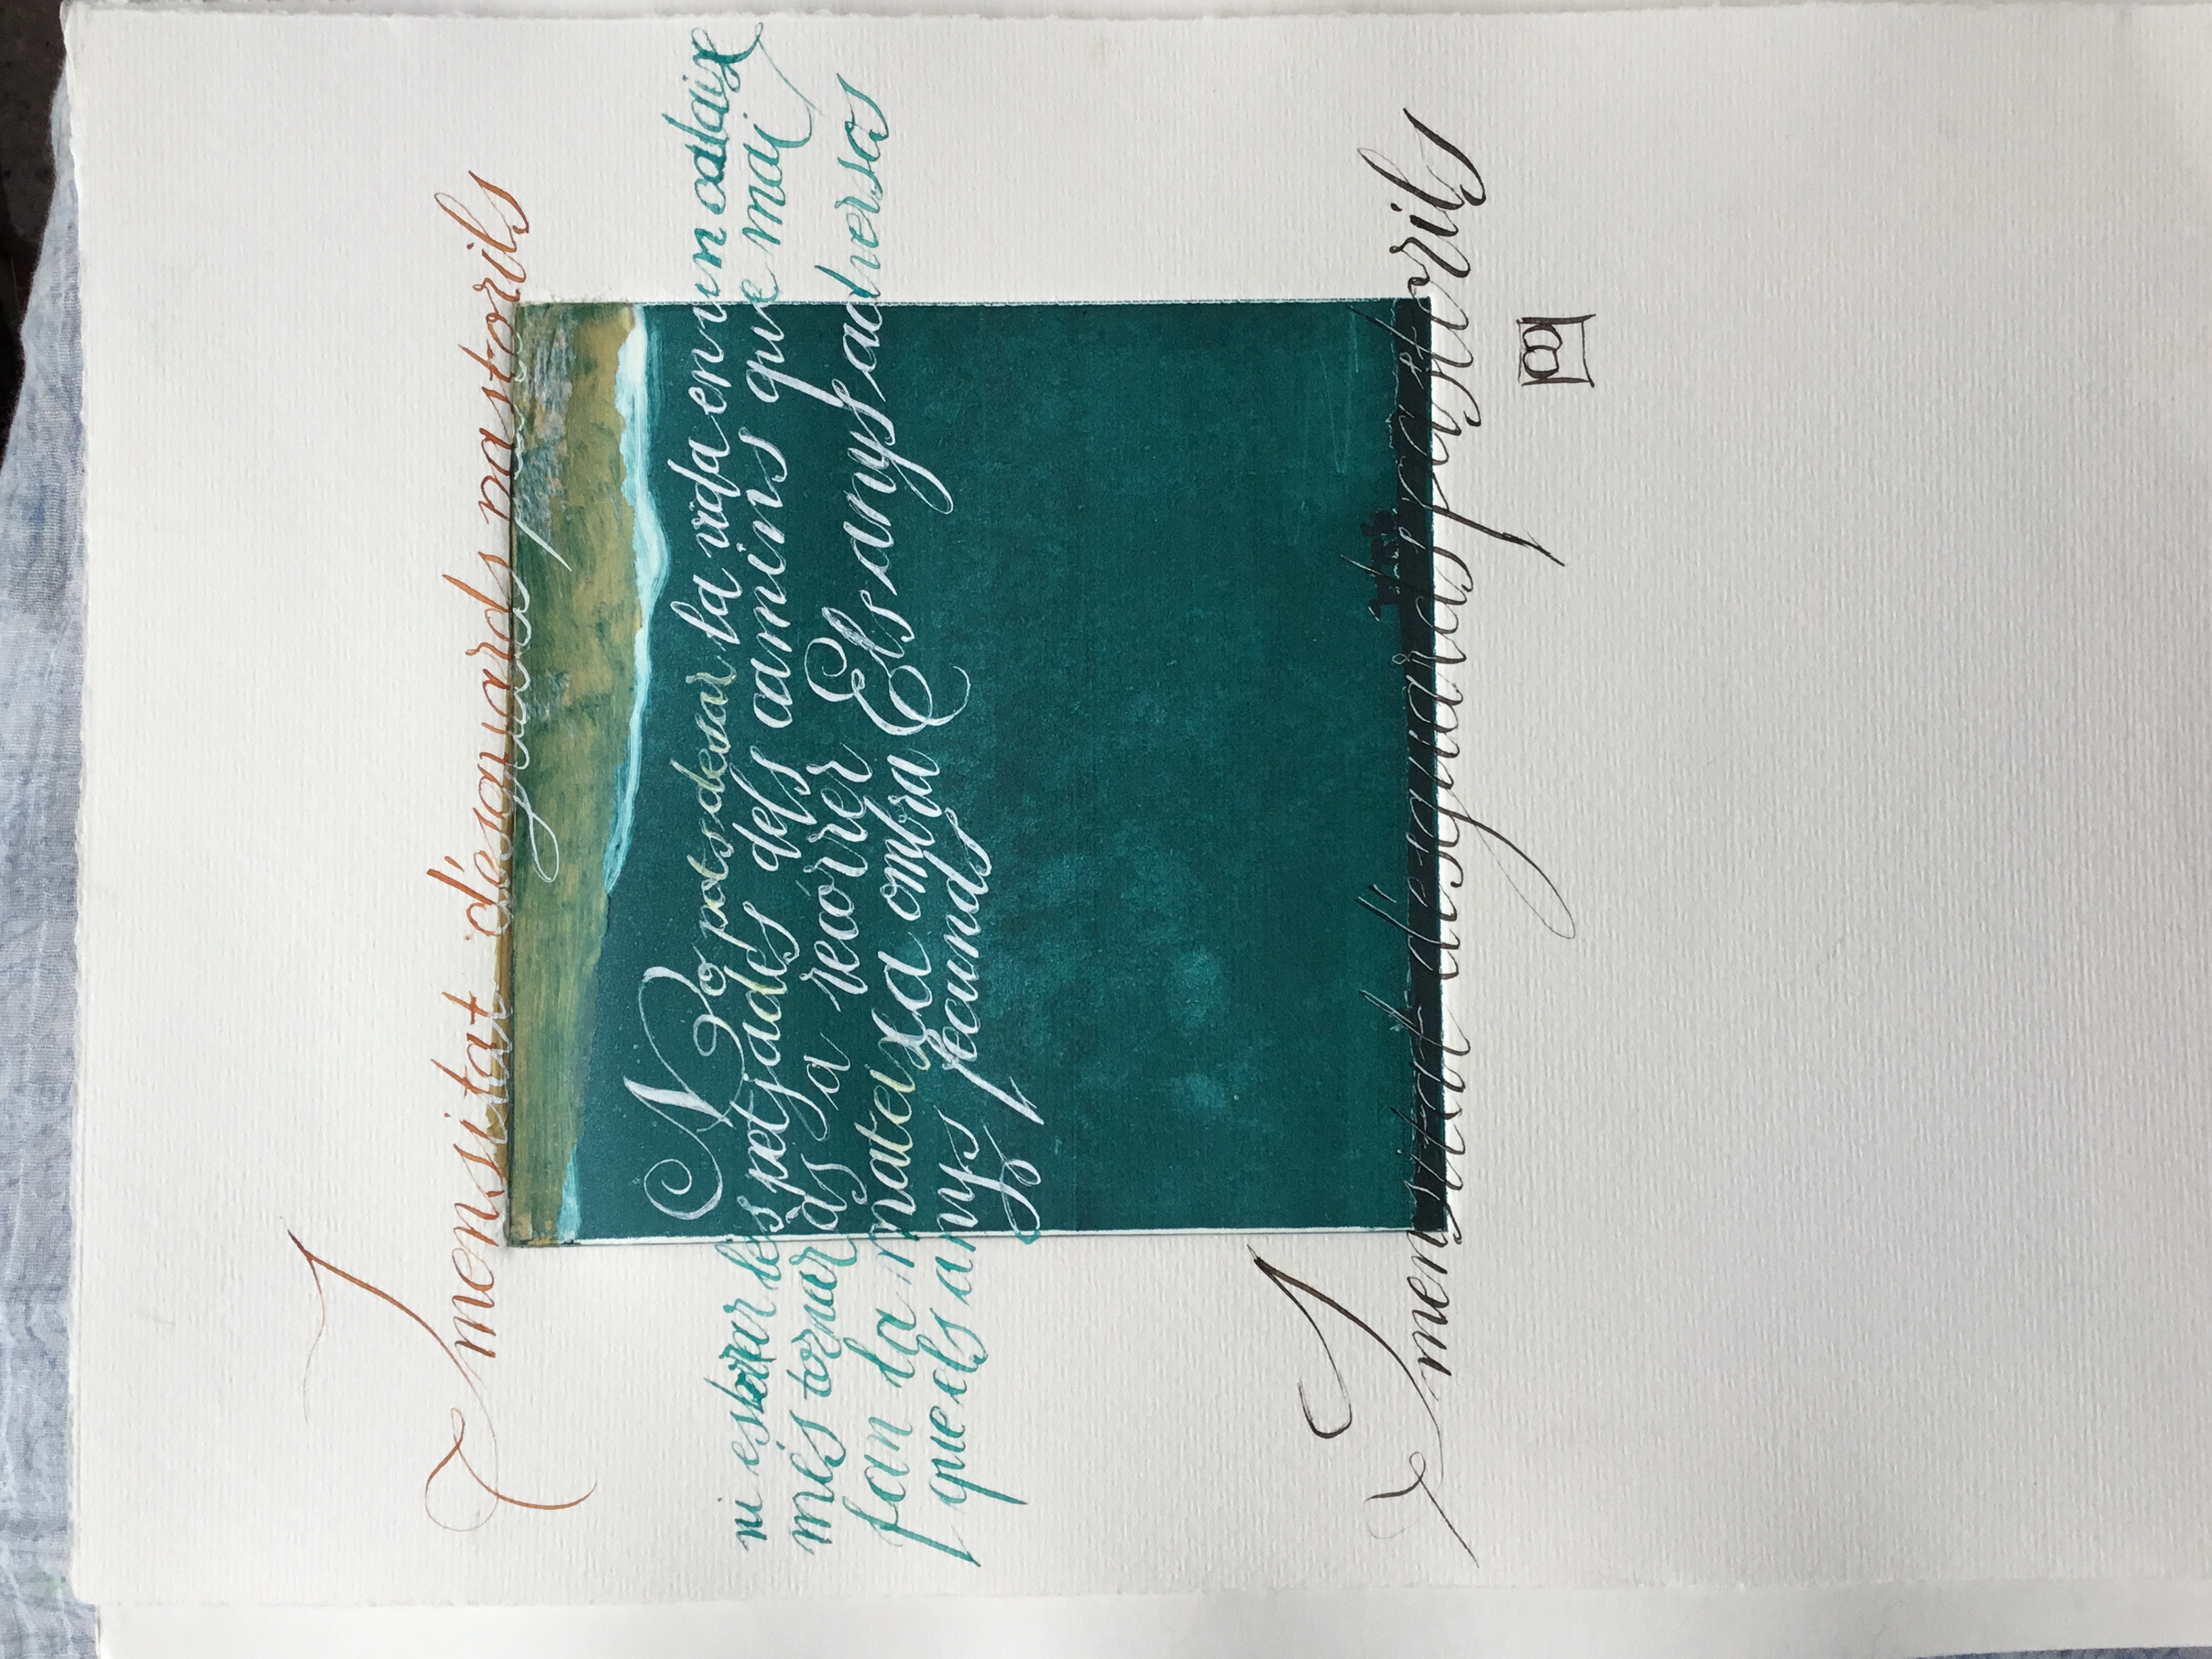 Imensitat d'esguards pastorils
No pots desar la vida en un calaix
ni esborrar les petjades dels camins que mai
més tornaràs a recorrer Els anys adversos
fan la mateixa ombra
que els anys fecunds
Imensitat d'esguards pastorils